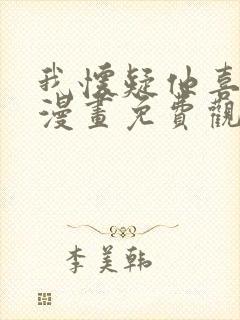 我懷疑他喜
漫畫免費觀
李美韩